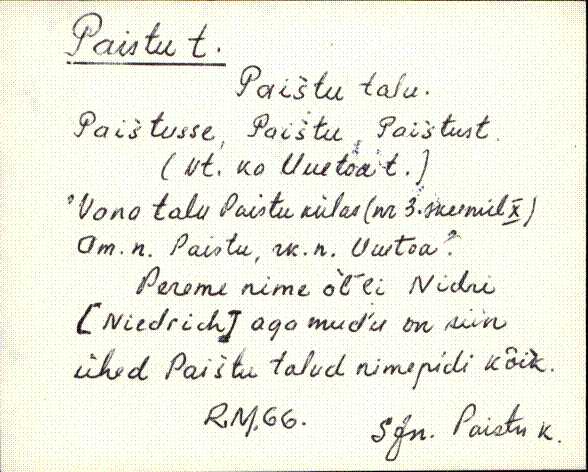 Paistu t.
Paištu talu.
Paištusse, Paištu, Paištust.
(vt. ka Uuetoa t.)
'Vana talu Paistu külas (nr 3. skeemil X)
Am. n. Paistu, rk. n. Uuetoa'.
Pereme nime öt'li Nidri
[Niedrich] aga mud'u on siin
ühed Paištu talud nimepidi kõik.
R.M. 66.
Sjn. Paistu k.